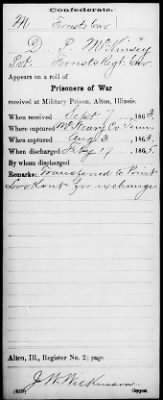 Confederate.
M Forrest's Cav
D. P. McKinsey
Pvt. Forrest's Regt. Cav
Appears on a roll of
Prisoners of War
received at Military Prison, Alton, Illinois.
When received Sept 7, 1863
Where captured Co Tenn
When captured Aug 3, 1863
When discharged Feb'y 17, 1865
By whom discharged
Remarks: Transferred to Point
Lookout for exchange
Alton, Ill., Register No. 2; page
J. W. Wickman
Copyist.